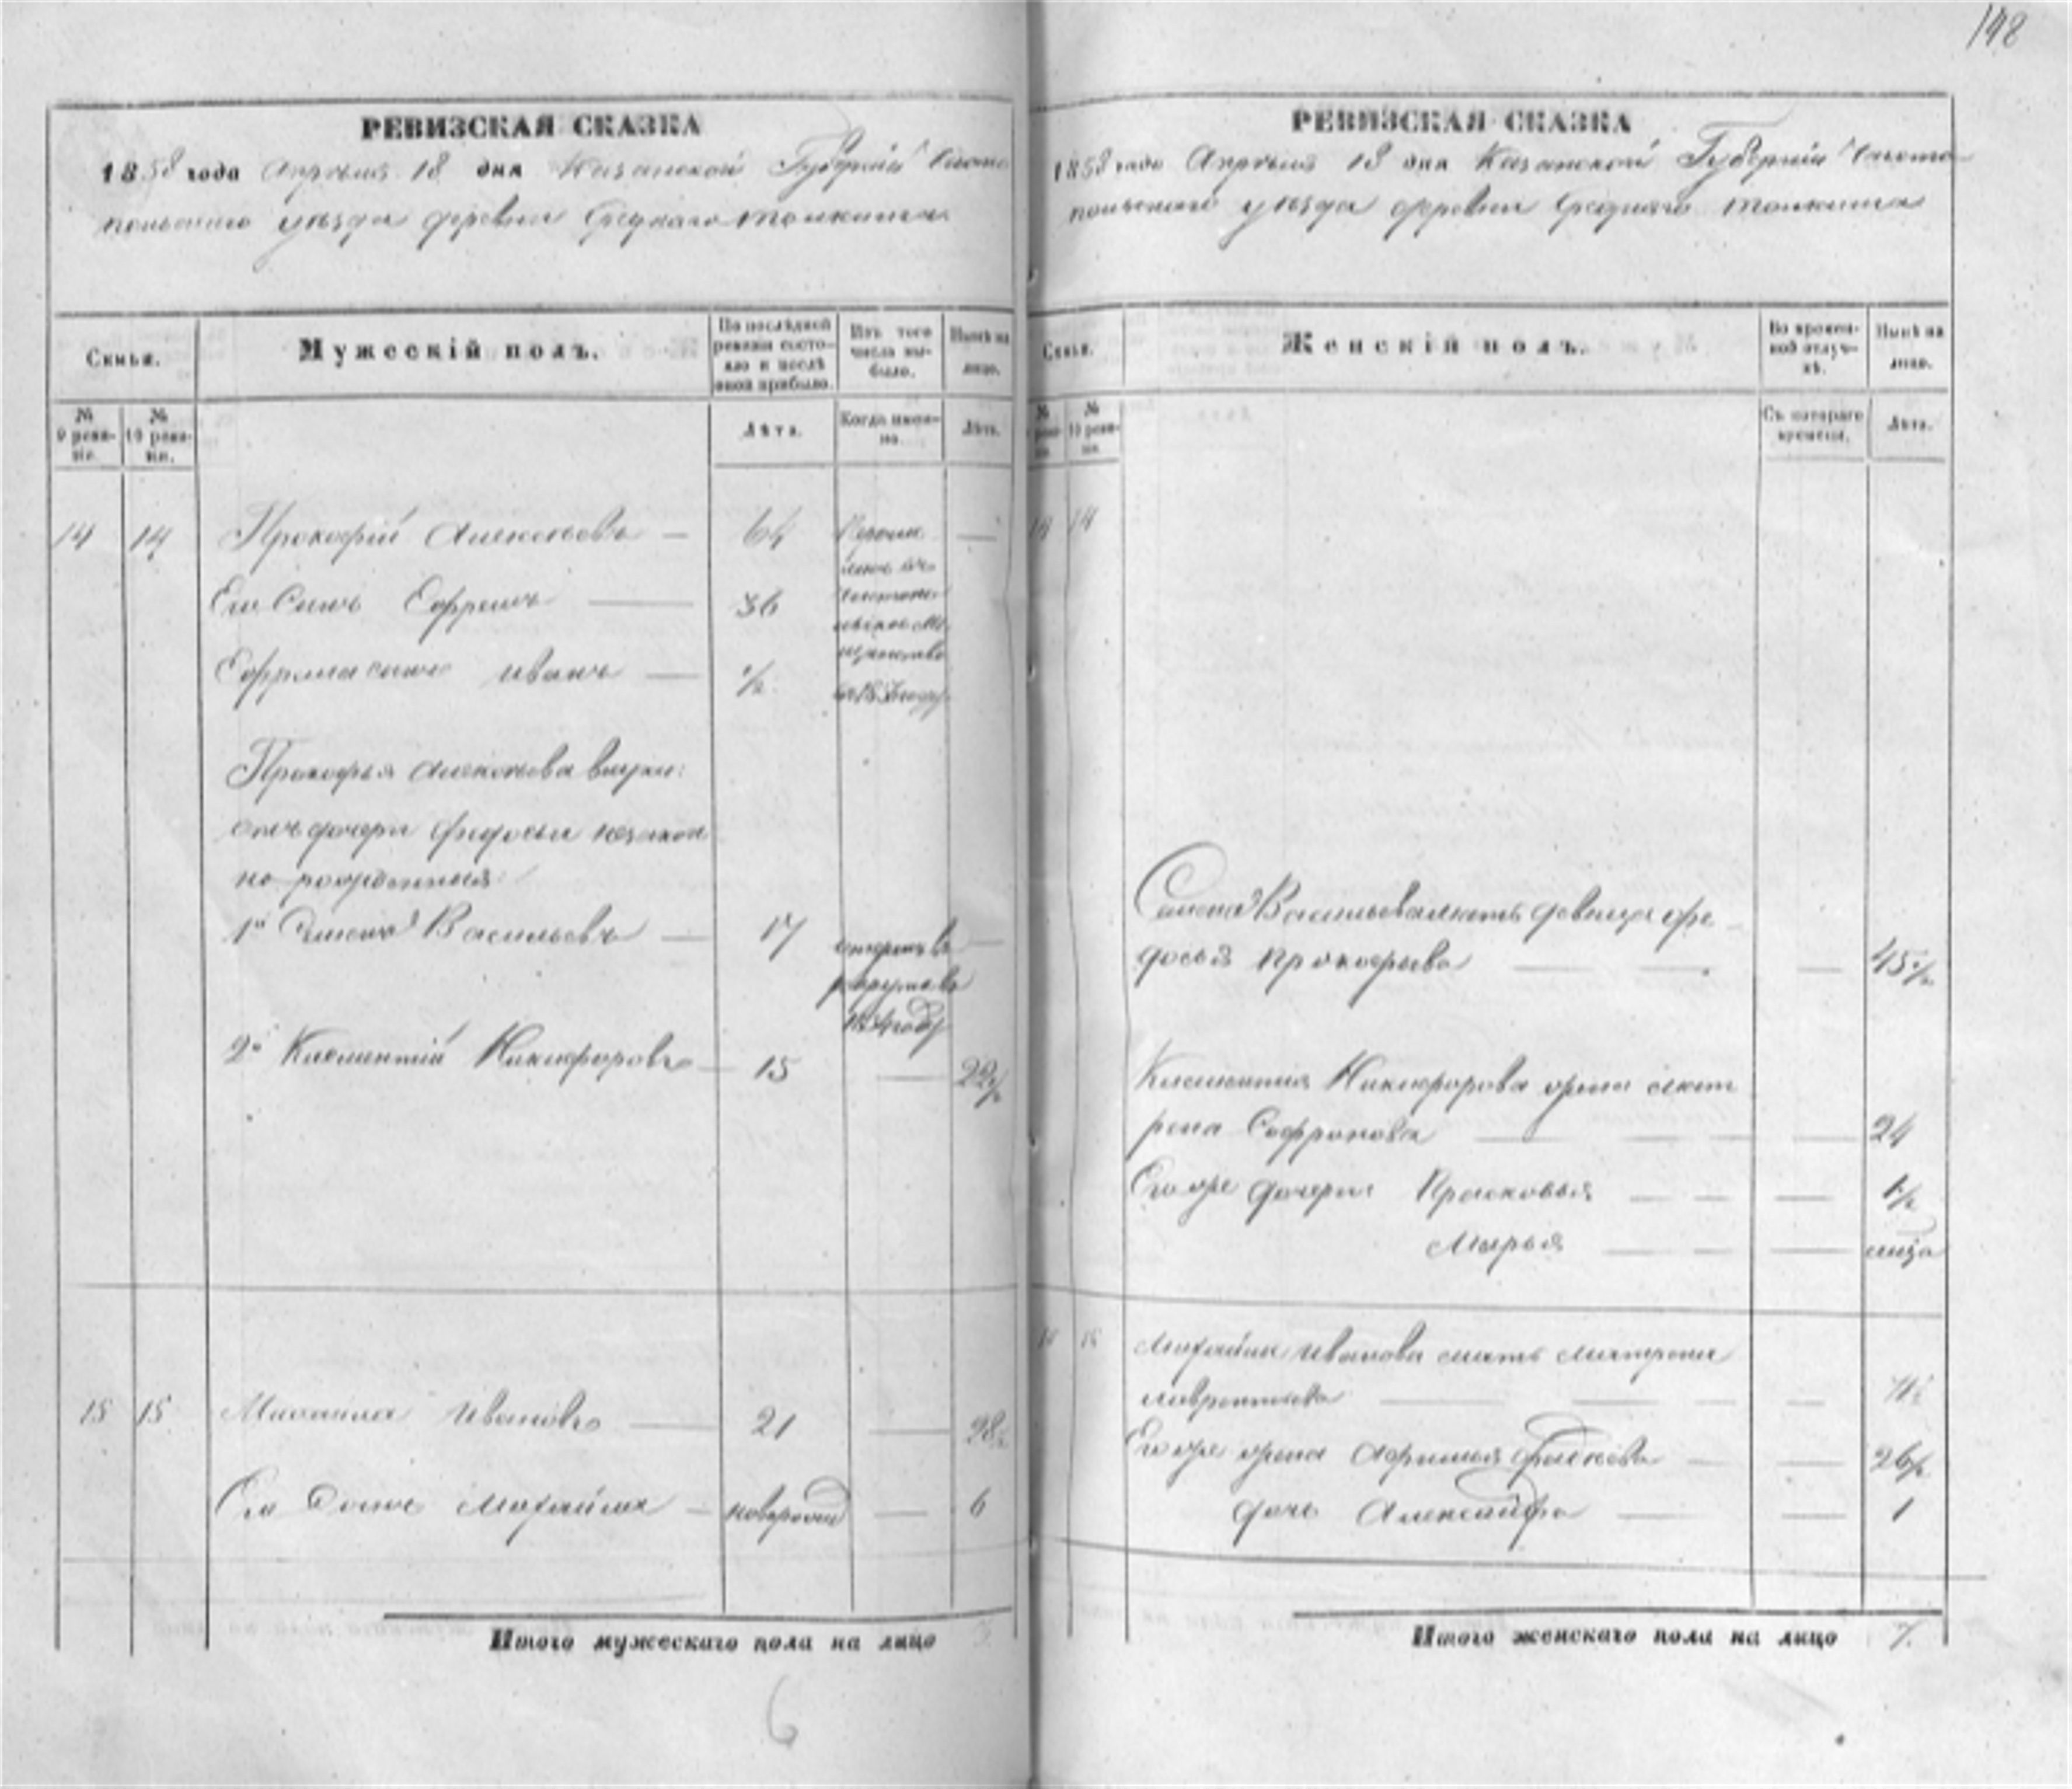 148
РЕВИЗСКАЯ СКАЗКА
1858 года Апреля 18 дня Казанской Губерніи Чисто
польскаго уезда деревни Средняго Толкиша
Семья.
Мужескій полъ.
По последней ревизіи состояло и после оной прибыло.
Изъ того числа выбыло.
Ныне на лицо.
№ 9 ревизіи.
№ 10 ревизіи.
Лѣта.
Когда именно.
Лѣта.
14 14 Прокофій Алексеевъ — 64 —
Его Сынъ Ефремъ — 36
Ефрема сынъ Иванъ — 1/2
Прокофья Алексеева внуки:
отъ дочери Федосьи незакон
но рожденныя
1й Васильевъ — 17 —
2й Климентій Никифоровъ — 15 — 22 1/2
15 15 Михаила Ивановъ — 21 — 28 1/2
Михайла — новорожд — 6
Итого мужескаго пола на лицо 3
6
РЕВИЗСКАЯ СКАЗКА
1858 года Апреля 18 дня Казанской Губерніи Чисто
польскаго уезда деревни Средняго Толкиша
Семья.
Женскій полъ.
Во временной отлучкѣ.
Нынѣ на лицо.
№ ревизіи.
№ 10 ревизіи.
Съ котораго времени.
Лѣта.
14 14
Васильева мать девица Фе
досья Прокофьева — — — 45 1/2
Климентия Никифорова жена Мат
рена Софронова — — — 24
Его же дочери: Прасковья — — — 1 1/2
Марья — — —
15 15 Михайлы Иванова мать Матрена
лаврентьева — — —
Его же жена — — 26 1/2
дочь Александра — — 1
Итого женскаго пола на лицо 7.